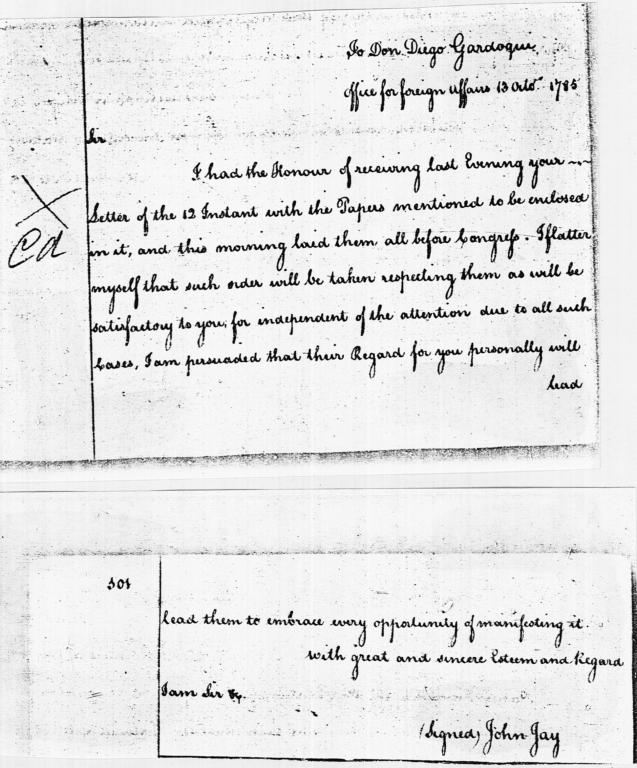 To Don Diego Gardoqui
Office for foreign Affairs 13 Octo.r 1785
Sir
I had the Honour of receiving last Evening your
Letter of the 12 Instant with the Papers mentioned to be enclosed
in it, and this morning laid them all before Congress. I flatter
myself that such order will be taken respecting them as will be
satisfactory to you, for independent of the attention due to all such
Cases, I am persuaded that their Regard for you personally will
lead
Cd
301
lead them to embrace every opportunity of manifesting it.
with great and sincere Esteem and Regard
I am Sir &c.
(Signed) John Jay